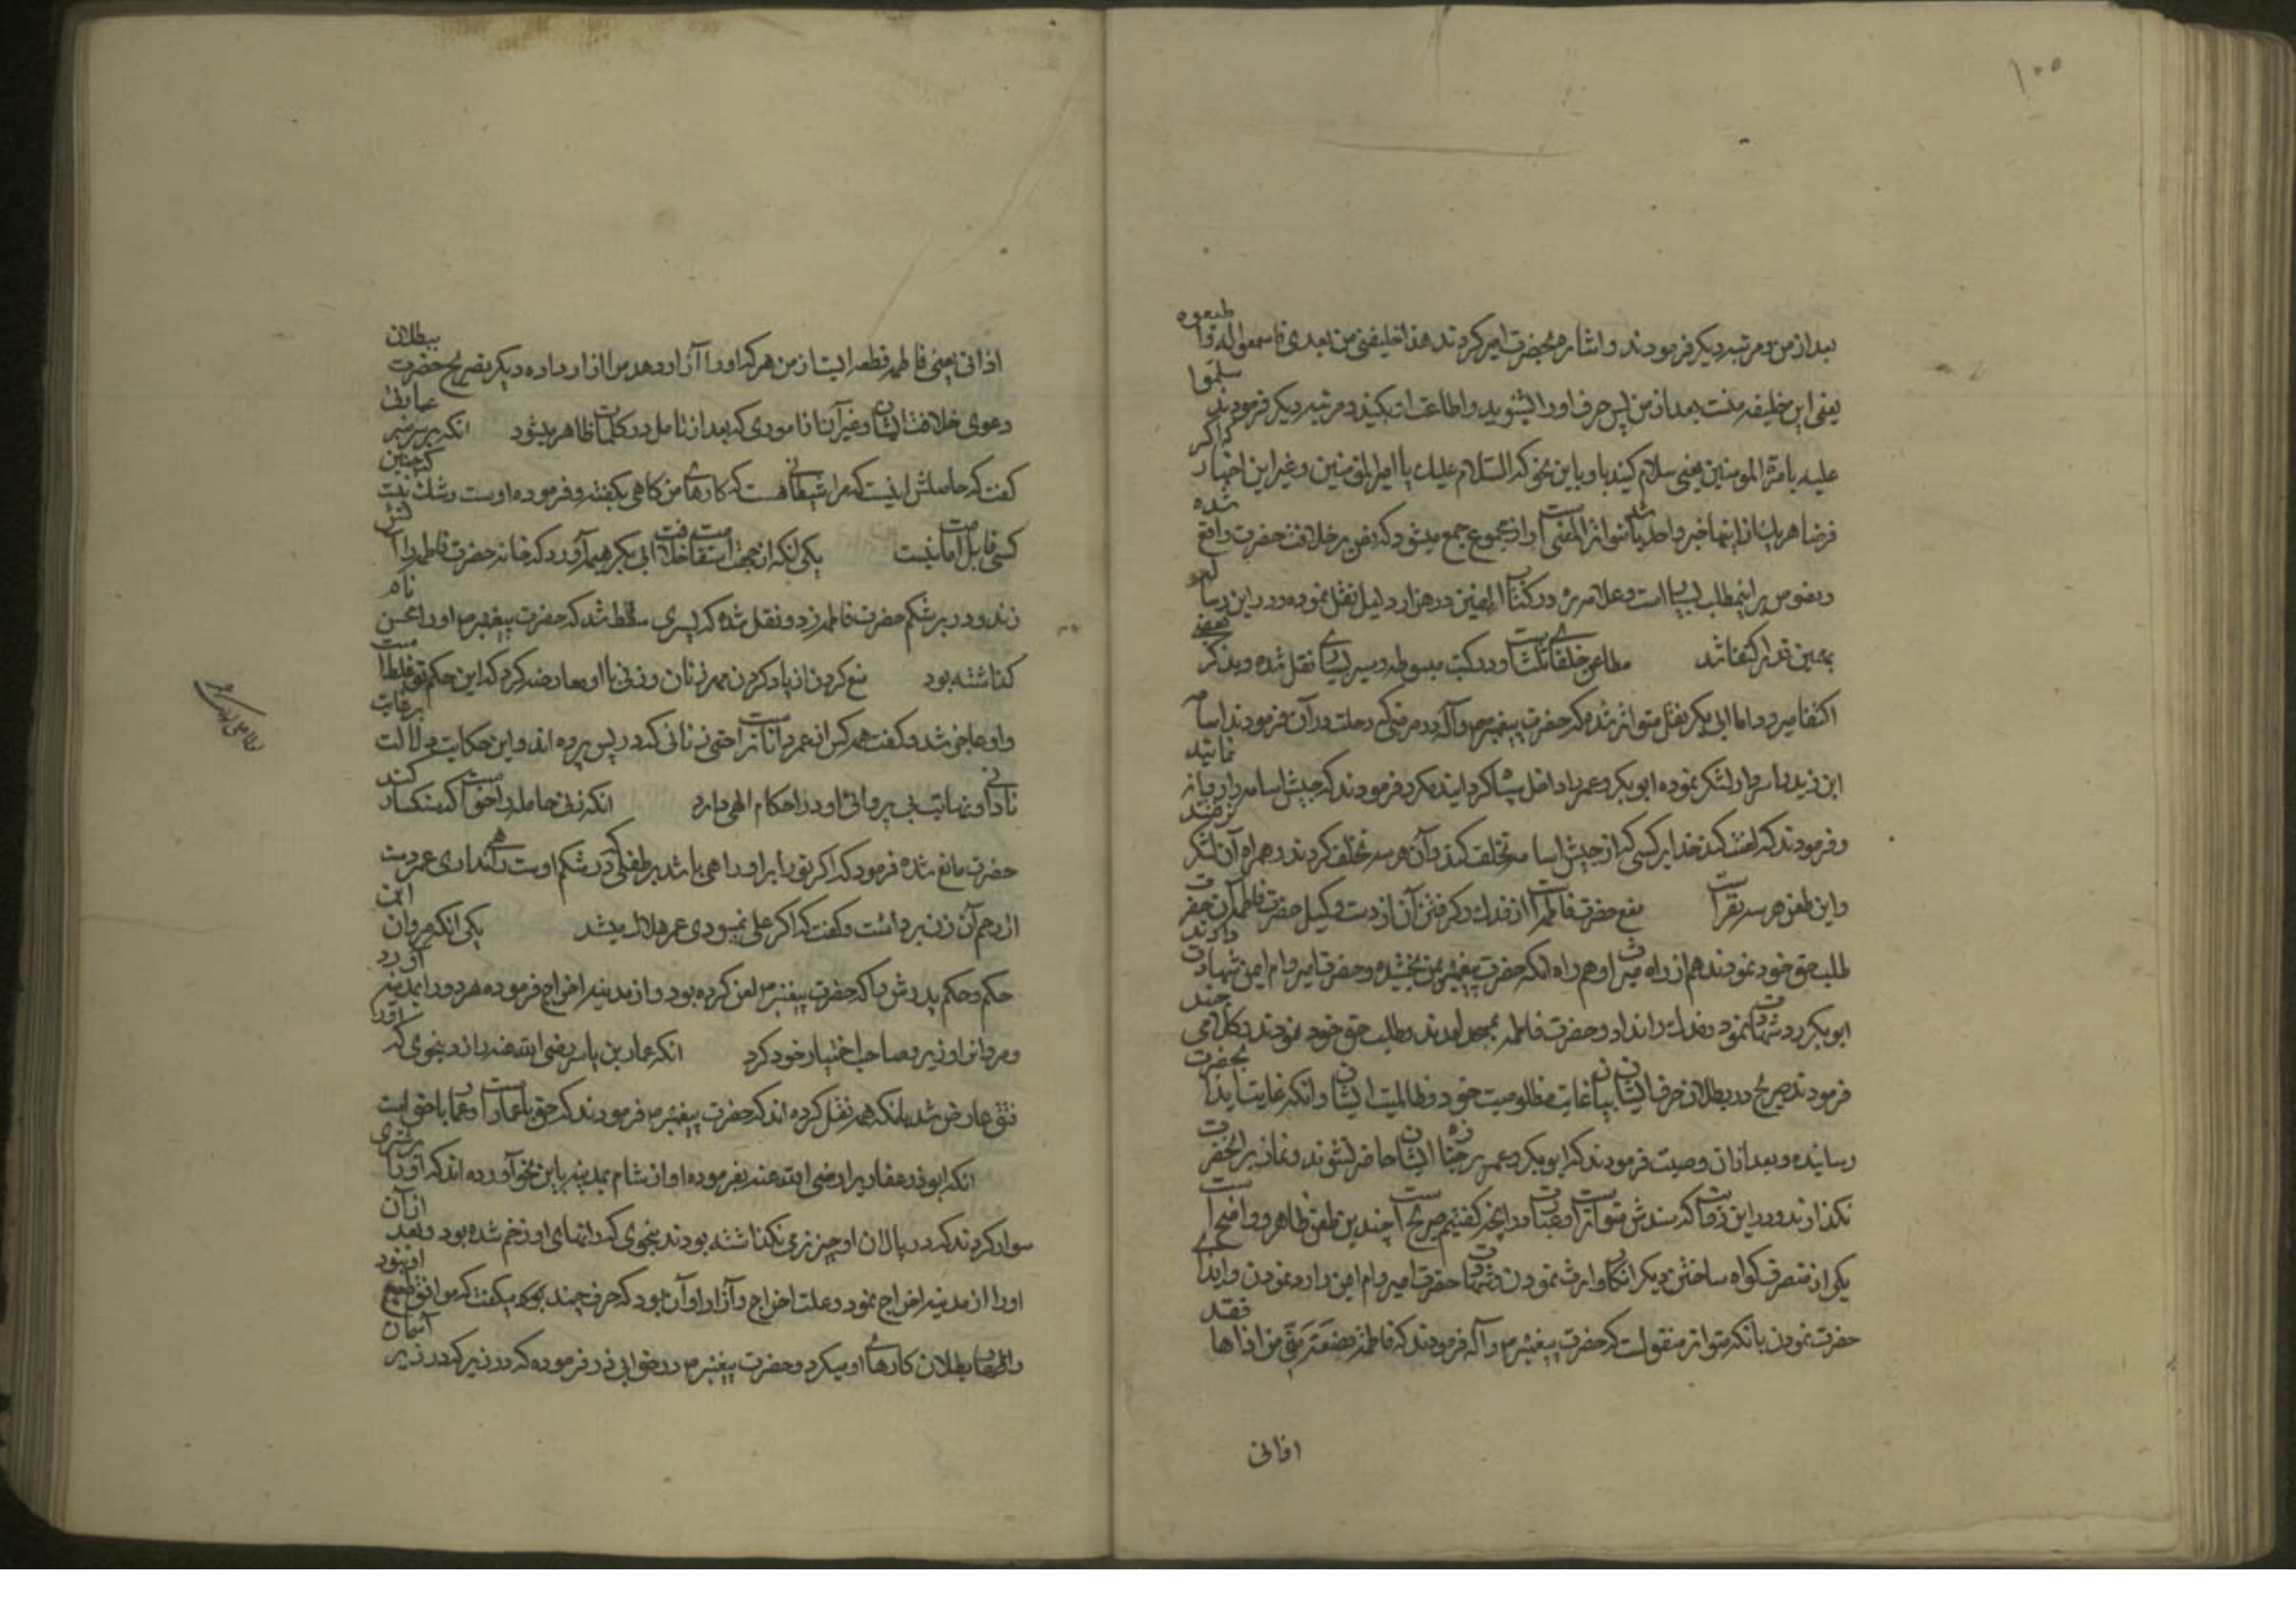 ۱۰۰
بعد از من و مرتبه دیگر فرمودند و اشاره بحضرت امیر کردند هذا خلیفتی من بعدی فاسمعوا له و اطیعوه
یعنی این خلیفه منست بعد از من پس حرف او را بشنوید و اطاعت او بکنید و مرتبه دیگر فرمودند سلموا
علیه بامرة المومنین یعنی سلام کنید باو باین نحو که السلام علیک یا امیرالمؤمنین و غیر این اخبار که اگر
فرضا هر یک از اینها خبر واحد باشد متواتر المعنی است و از مجموع جمع میشود که نص بر خلافت حضرت واقع شده
و نصوص بر اینمطلب بسیار است و علامه ره در کتاب الفین دو هزار دلیل نقل نموده و در این رساله
بهمین قدر اکتفا شد مطاعن خلفای ثلث است و در کتب مبسوطه و سیر بسیاری نقل شده و بذکر بعضی
اکتفا میرود اما ابی بکر نقل متواتر شده که حضرت پیغمبر ص و آله در مرضی که رحلت در آن فرمودند اسامه
ابن زید را سردار لشکر نموده ابو بکر و عمر را داخل سپاه کردانیده مکرر فرمودند که جیش اسامه را روانه نمایند
و فرمودند که لعنت کند خدا بر کسی که از جیش اسامه تخلف کند و آن هر سه تخلف کردند و همراه آن لشکر نرفتند
و این طعن هر سه نفر است منع حضرت فاطمه را از فدک و کرفتن آن از دست وکیل حضرت فاطمه آن حضرت
طلب حق خود نمودند هم از راه میراث و هم راه انکه حضرت پیغمبر بمن بخشیده و حضرت امیر و ام ایمن شهادت دادند
ابو بکر رد شهادت نمود و فدک را نداد و حضرت فاطمه بمسجد آمدند و طلب حق خود نمودند و کلامی چند
فرمودند صریح در بطلان حرف ایشان و بیان غایت مظلومیت خود و ظالمیت ایشان و انکه غایت ایذا بحضرت
رسانیده و بعد از ان وصیت فرمودند که ابو بکر و عمر بر جنازه ایشان حاضر نشوند و نماز بر آنحضرت
نکذارند و در این روایت که سندش متواتر است و عبارت در اینجا کفتیم صریح است چندین طعن ظاهر و واضح است
یکی از متصرف کواه ساختن دیکر انکار وارث نمودن و شهادت حضرت امیر و ام ایمن را رد نمودن و ایذای
حضرت نمودن با انکه متواتر منقولست که حضرت پیغمبر ص و آله فرمودند که فاطمة بضعة منی من اذاها فقد
اذانی
اذانی یعنی فاطمه قطعه ایست از من هر که او را آزار دهد من را آزار داده و دیکر تصریح حضرت ببطلان
دعوی خلافت ایشان و غیر آن از اموری که بعد از تامل در کلمات ظاهر میشود انکه بر سر منبر علانیة
کفت که حاصلش اینست که مرا شیطانی هست که کارهای من کاهی بکفته و فرموده اوست و شک نیست که چنین
کسی قابل امامت نیست یکی انکه از جهت استقامت خلافت ابی بکر هیمه آورد که خانه حضرت فاطمه را آتش
زند و در بر شکم حضرت فاطمه زد و نقل شده که پسری سقط شد که حضرت پیغمبر ص او را محسن نام
کذاشته بود منع کردن از زیاد کردن مهر زنان و زنی با او معارضه کرد که این حکم تو غلط است
و او عاجز شد و کفت همه کس از عمر داناتر است حتی زنانی که در پس پرده اند و این حکایت دلالت بر غایت
نادانی او و نهایت بی پروائی او در احکام الهی دارد انکه زنی حامله را خواست که سنکسار کند
حضرت مانع شده فرمود که اکر تو را بر او راهی باشد بر طفلی که در شکم اوست راهی نداری عمر دست
از رجم آن زن برداشت و کفت که اکر علی نمیبودی عمر هلاک میشد یکی انکه مروان ابن
حکم و حکم پدرش را که حضرت پیغمبر ص لعن کرده بود و از مدینه اخراج فرموده هر دو را بمدینه آورد
و مروان را وزیر و صاحب اختیار خود کرد انکه عمار بن یاسر رضی الله عنه را زد بنحوی که او را
فتق عارض شد با انکه همه نقل کرده اند که حضرت پیغمبر ص فرمودند که حق با عمار است و عمار با حق است
انکه ابوذر غفاری را رضی الله عنه بفرموده او از شام بمدینه باین نحو آورده اند که او را بر شتری
سوار کردند که در پالان او چیز نرمی نکذاشته بودند بنحوی که رانهای او زخم شده بود و بعد از آن
او را از مدینه اخراج نمود و علت اخراج و آزار او آن بود که حرف چند میکفت که موافق طبع او نبود
و اظهار بطلان کارهای او میکرد و حضرت پیغمبر ص در حق ابی ذر فرموده که در زیر آسمان